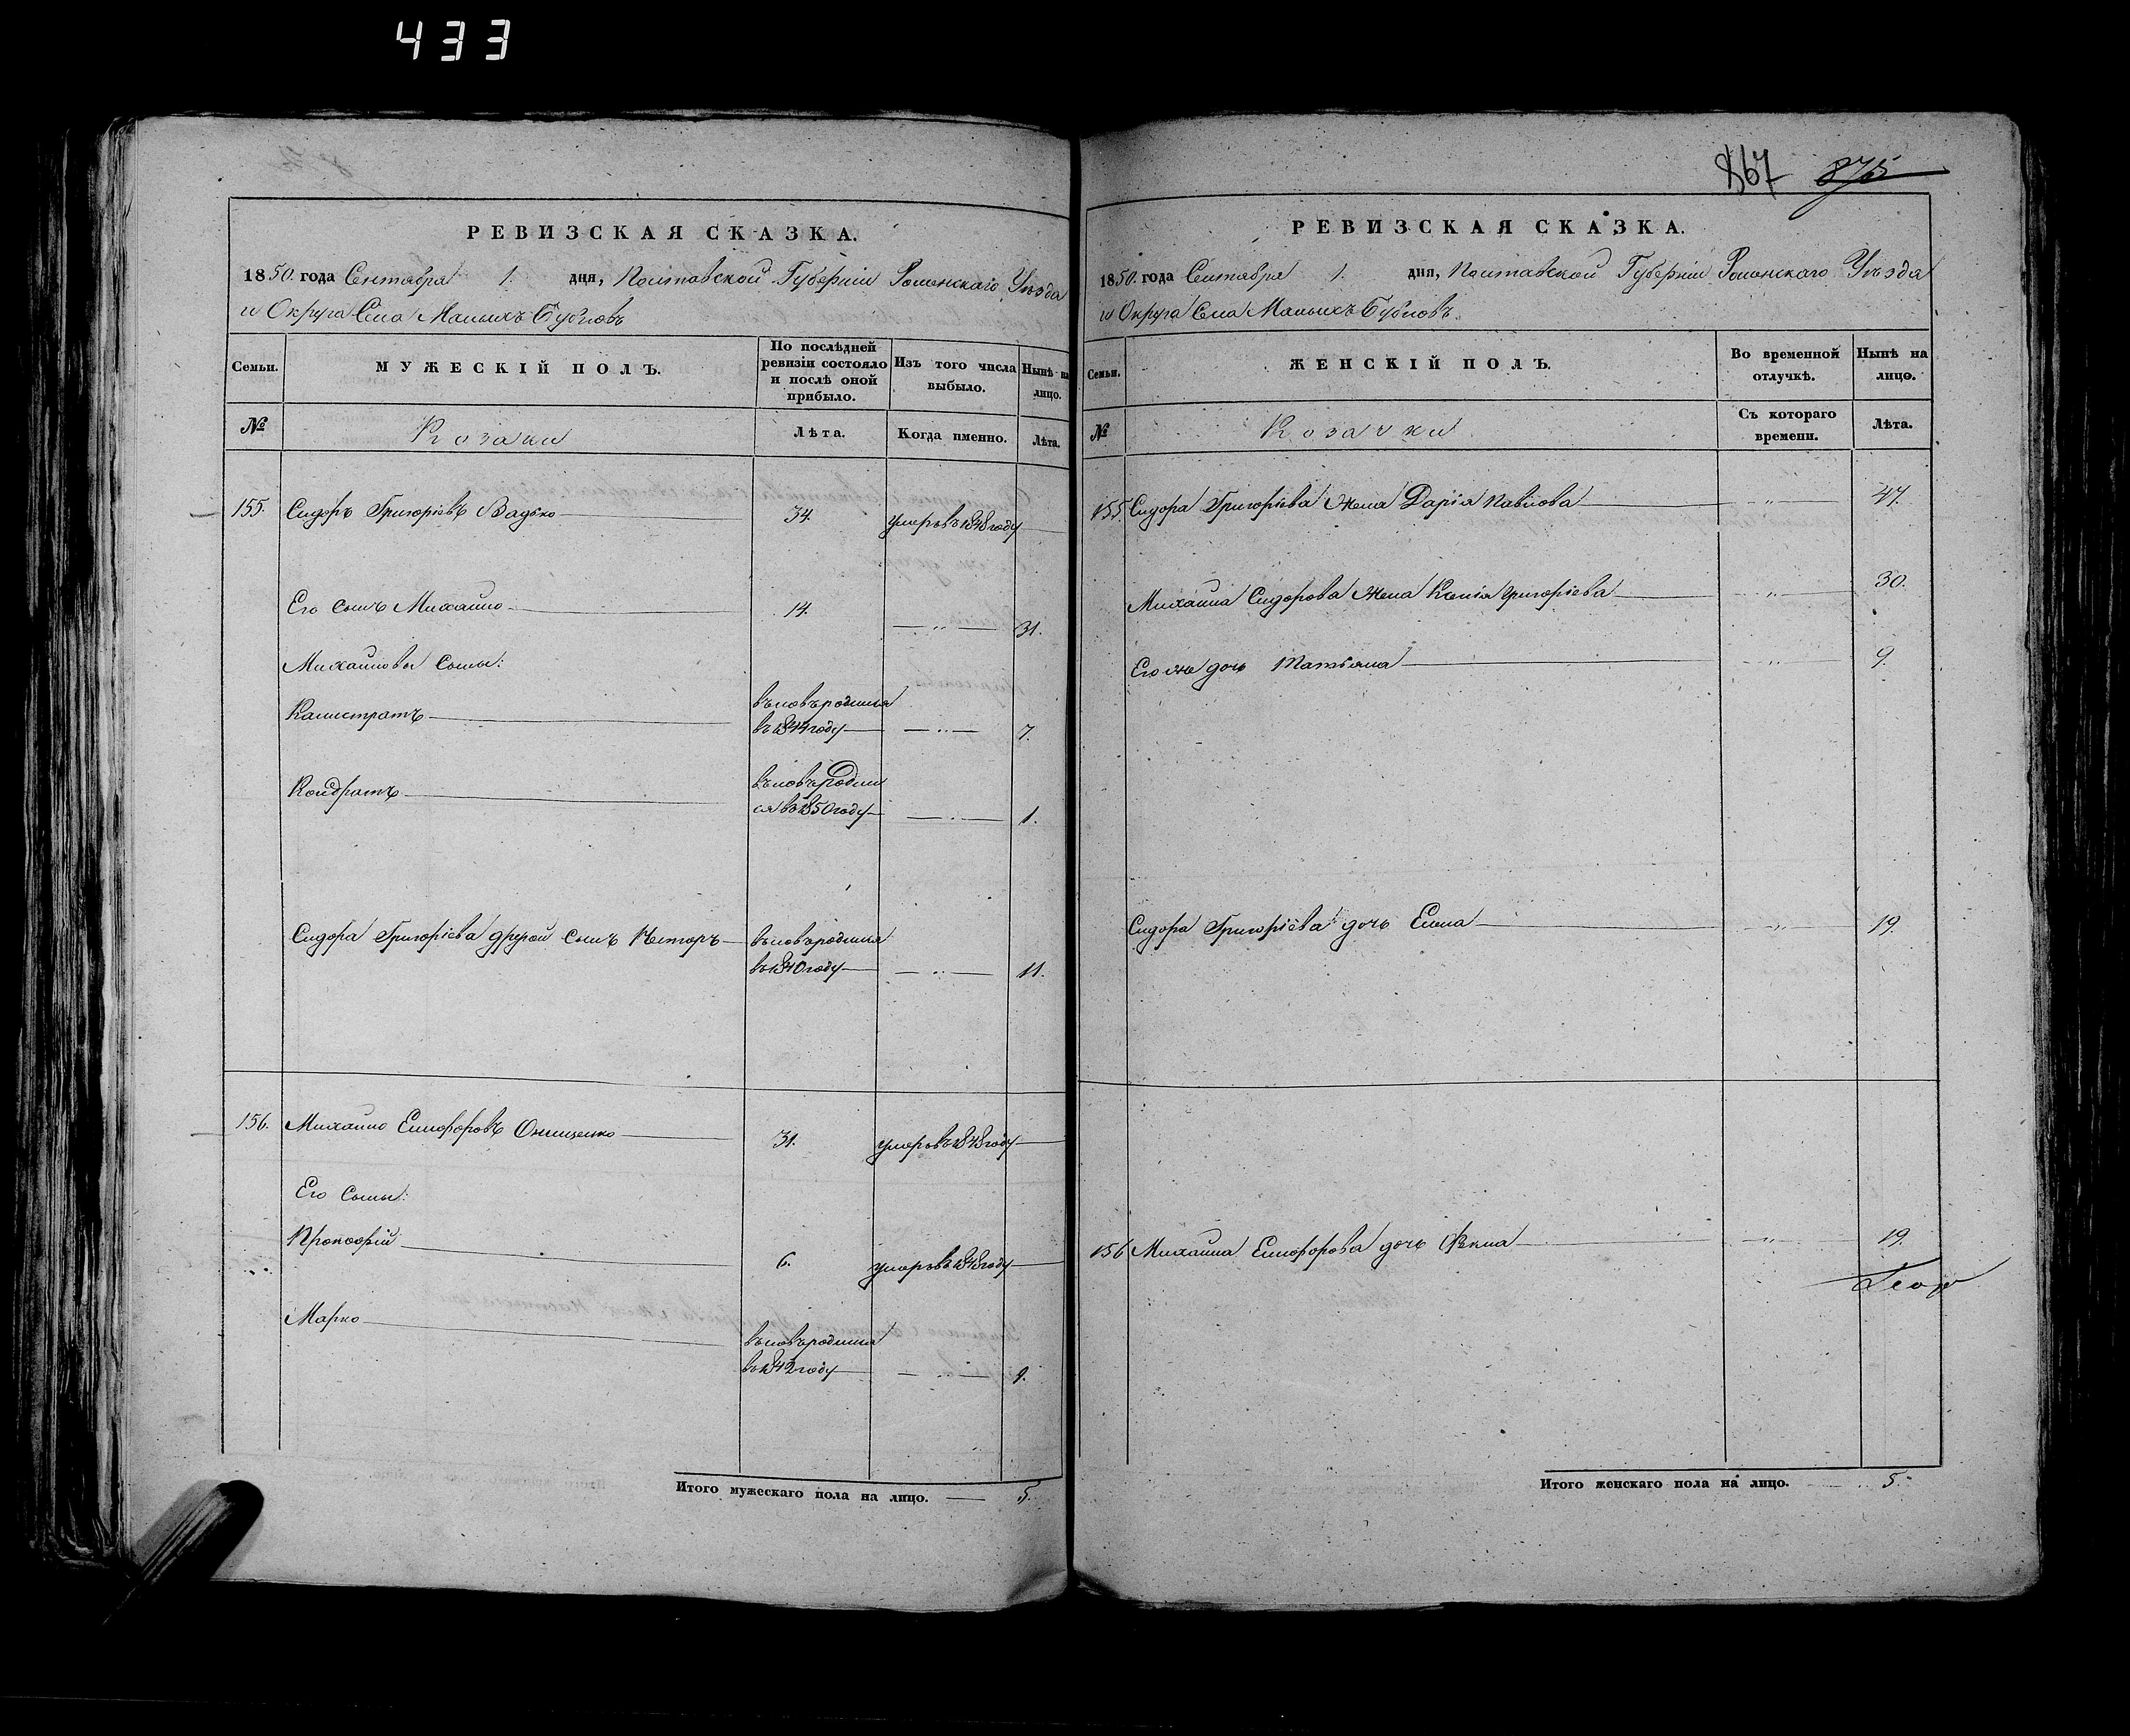 433
867 875
РЕВИЗСКАЯ СКАЗКА.
1850. года Сентября 1. дня, Полтавской Губерніи Роменскаго Уѣзда
и Округа Села Малыхъ Бубновъ
Семьи.
МУЖЕСКІЙ ПОЛЪ.
По послѣдней
ревизіи состояло
и послѣ оной
прибыло.
Изъ того числа
выбыло.
Нынѣ на
лицо.
№
Козаки
Лѣта.
Когда именно.
Лѣта.
155. Сидоръ Григорьевъ Вадько 34. умеръ въ 1848 году
Его сынъ Михайло 14. — „ — 31.
Михайловы сыны:
Калистратъ
вьновь родился
въ 1844 году — „ — 7.
Кондратъ
вьновь родил
ся въ 1850 году — „ — 1.
Сидора Григорьева другой сынъ Нестеръ вьновь родился
въ 1840 году — „ — 11.
156. Михайло Елифоровъ Онищенко 31. умеръ въ 1848 году
Его сыны:
Прокофій 6. умеръ въ 1848 году
Марко
вьновь родился
въ 1842 году — „ — 9.
Итого мужескаго пола на лицо. — 5.
РЕВИЗСКАЯ СКАЗКА.
1850. года Сентября 1. дня, Полтавской Губерніи Роменскаго Уѣзда
и Округа Села Малыхъ Бубновъ.
Семьи.
ЖЕНСКІЙ ПОЛЪ.
Во временной
отлучкѣ.
Нынѣ на
лицо.
№
Козачки
Съ котораго
времени.
Лѣта.
155. Сидора Григорьева жена Дарія Павлова — „ — 47.
Михаила Сидорова жена Ксенія Григорьева — „ — 30.
Его же дочь Татьяна — „ — 9.
Сидора Григорьева дочь Елена — „ — 19.
156 Михаила Елифорова дочь Фекла — „ — 19.
Итого женскаго пола на лицо. — 5.